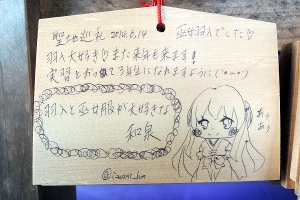 聖地巡礼 2014.6.14 巫女羽入でした♡
羽入大好き♡また来年も来ます!
実習とおって3年生になれますように(´･ω･`)
羽入と巫女服が大好きな
和泉
あぅ
あぅ